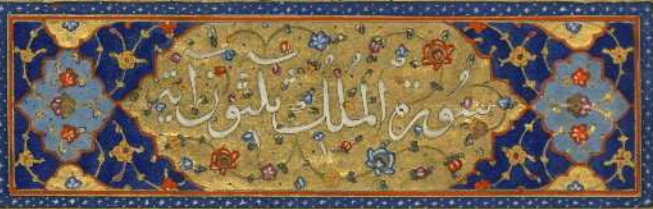 سورة الملك ثلثون آية